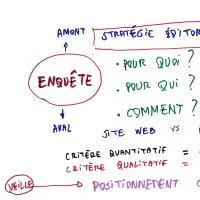 AMONT
STRATÉGIE ÉDITOR
ENQUÊTE
• POUR QUOI ?
• POUR QUI ?
• COMMENT ?
AVAL
SITE WEB VS
CRITÈRE QUANTITATIF =
CRITÈRE QUALITATIF =
VEILLE
POSITIONNEMENT